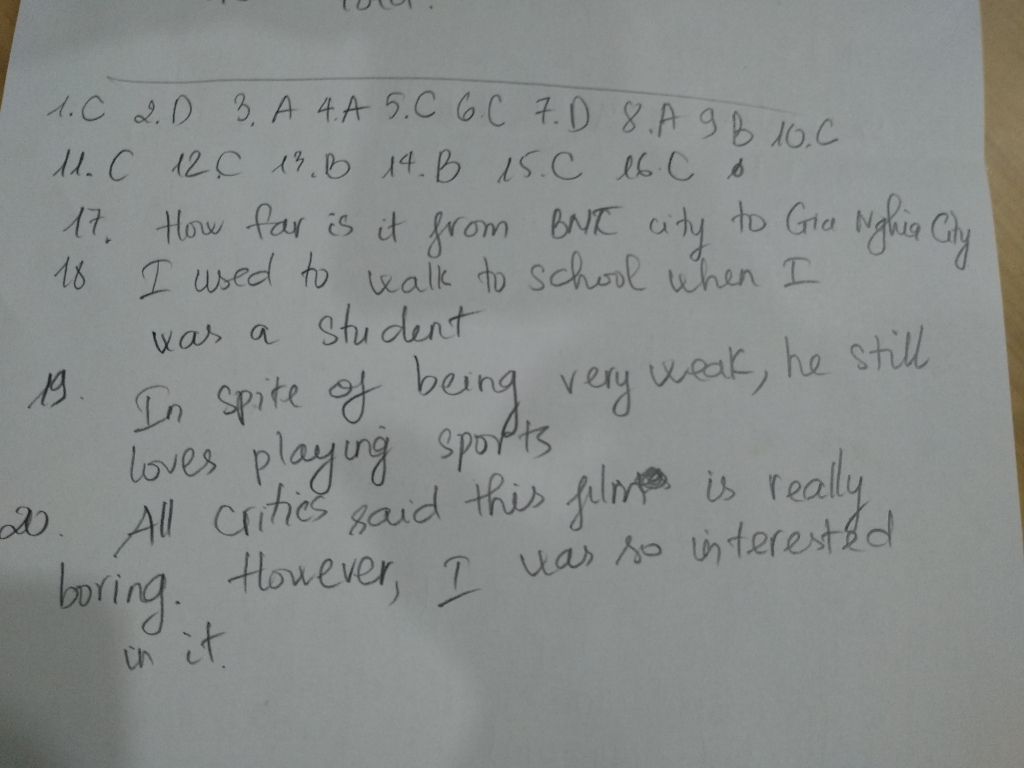 total.
1.C 2.D 3. A 4.A 5.C 6.C 7.D 8.A 9 B 10.C
11. C 12 C 13.B 14.B 15.C 16.C
17. How far is it from BMT city to Gia Nghia City
18 I used to walk to school when I
was a student
19. In spite of being very weak, he still
loves playing sports
20. All critics said this film is really
boring. However, I was so interested
in it.